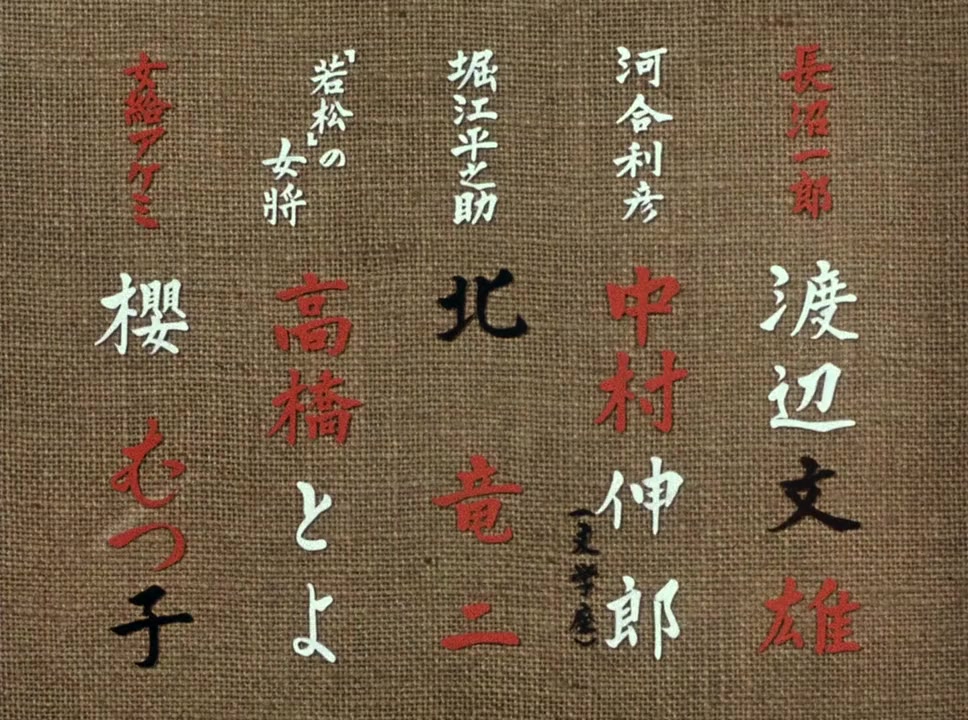 長沼一郎
渡辺文雄
河合利彦
中村伸郎
(文学座)
堀江平之助
北竜二
「若松」の
女将
高橋とよ
女給アケミ
櫻むつ子